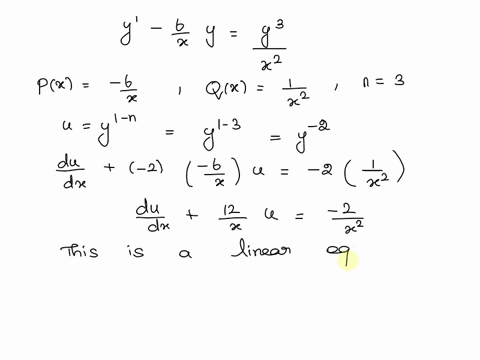 y' - 6/x y = y^3/x^2
P(x) = -6/x , Q(x) = 1/x^2 , n = 3
u = y^{1-n} = y^{1-3} = y^{-2}
du/dx + (-2) (-6/x) u = -2 (1/x^2)
du/dx + 12/x u = -2/x^2
This is a linear eq